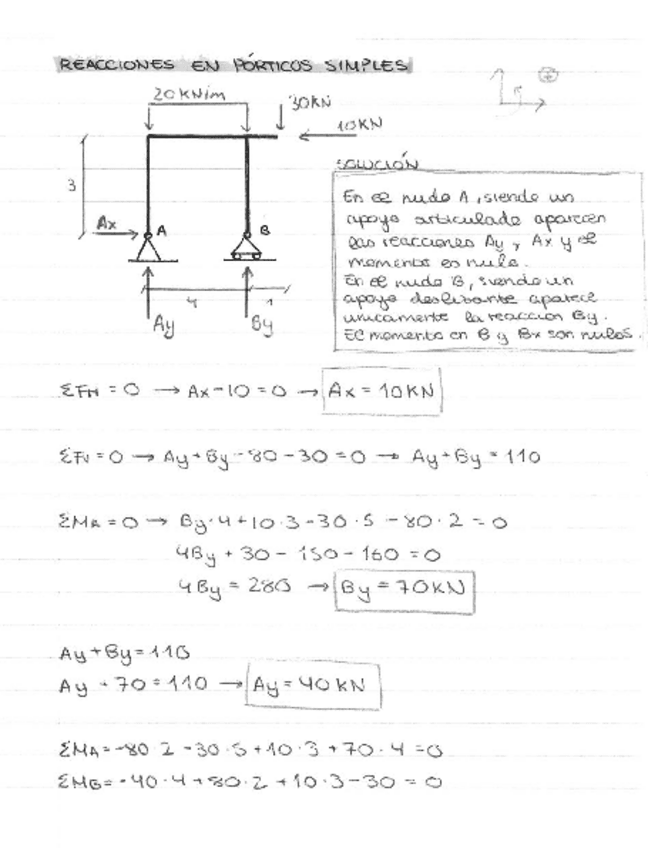 REACCIONES EN PÓRTICOS SIMPLES
20 KN/m
30KN
10KN
3
Ax
A
B
4
1
Ay
By
SOLUCIÓN
En el nudo A, siendo un
apoyo articulado aparecen
las reacciones Ay, Ax y el
momento es nulo.
En el nudo B, siendo un
apoyo deslizante aparece
unicamente la reacción By.
El momento en B y Bx son nulos.
ΣFH = 0 → Ax-10 = 0 → Ax = 10KN
ΣFV = 0 → Ay+By-80-30 = 0 → Ay+By = 110
ΣMA = 0 → By·4+10·3-30·5-80·2 = 0
4By + 30 - 150 - 160 = 0
4By = 280 → By = 70KN
Ay+By=110
Ay + 70 = 110 → Ay = 40 KN
ΣMA = -80·2-30·5+10·3+70·4 = 0
ΣMB = -40·4+80·2+10·3-30 = 0